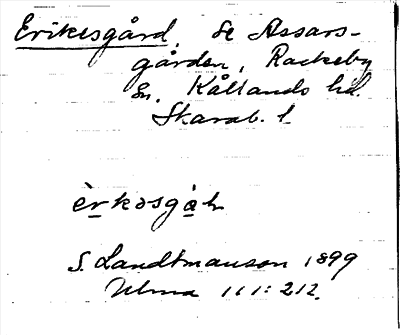 Erikesgård se Assars-
gården, Rackeby
sn. Kållands hd.
Skarab. l.
èrkəsgàh
S. Landtmanson 1899
Ulma 111:212.